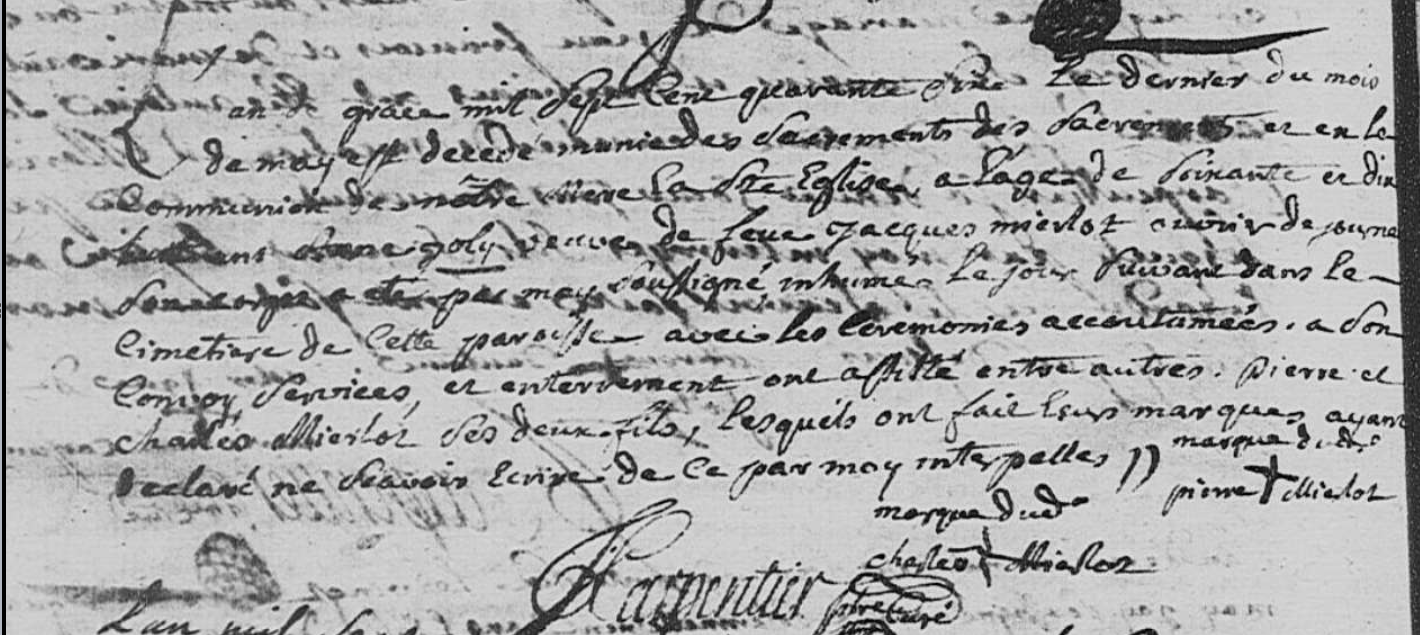 L'an de grace mil Sept Cent quarante Six Le dernier du mois
de may est decedé munie des Sacrements des Sacrements et en la
Communion de nôtre Mere La Ste Eglise, a l'age de Soixante et dix
huit ans Anne poly veuve de feue Jacques mierlot ouvrier de journe
Son corps a été par moy soussigné inhumé Le jour Suivant dans le
Cimetiere de Cette paroisse avec les Ceremonies accoutumées. a Son
Convoy Services, et enterrement ont assisté entre autres. pierre et
charles Mierlot Ses deux fils, lesquels ont fait leurs marques ayant
declaré ne Scavoir Ecrire de Ce par moy interpelles //
marque dudt
pierre + Mierlot
marque dudt
charles + Mierlot
Carpentier
ptre Curé
L'an mil